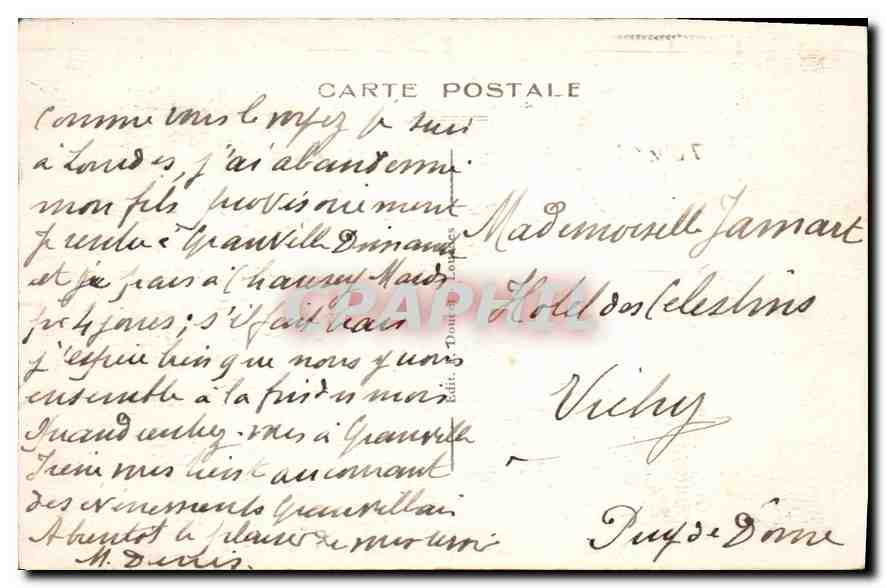 CARTE POSTALE
Comme vous le voyez je suis
à Lourdes, j'ai abandonné
mon fils provisoirement
Je rentre à Granville Dimanche
et je pars à Chausey Mardi
pr 4 jours; s'il fait beau
j'espère bien que nous y irons
ensemble à la fin du mois
Quand rentrez-vous à Granville
Irène vous tient au courant
des évènements Granvillais
A bientot le plaisir de vous revoir
M. Denis.
Edit. Doucet Lourdes
Mademoiselle Jamart
Hotel des Célestins
Vichy
Puy de Dôme
CPAPHIL